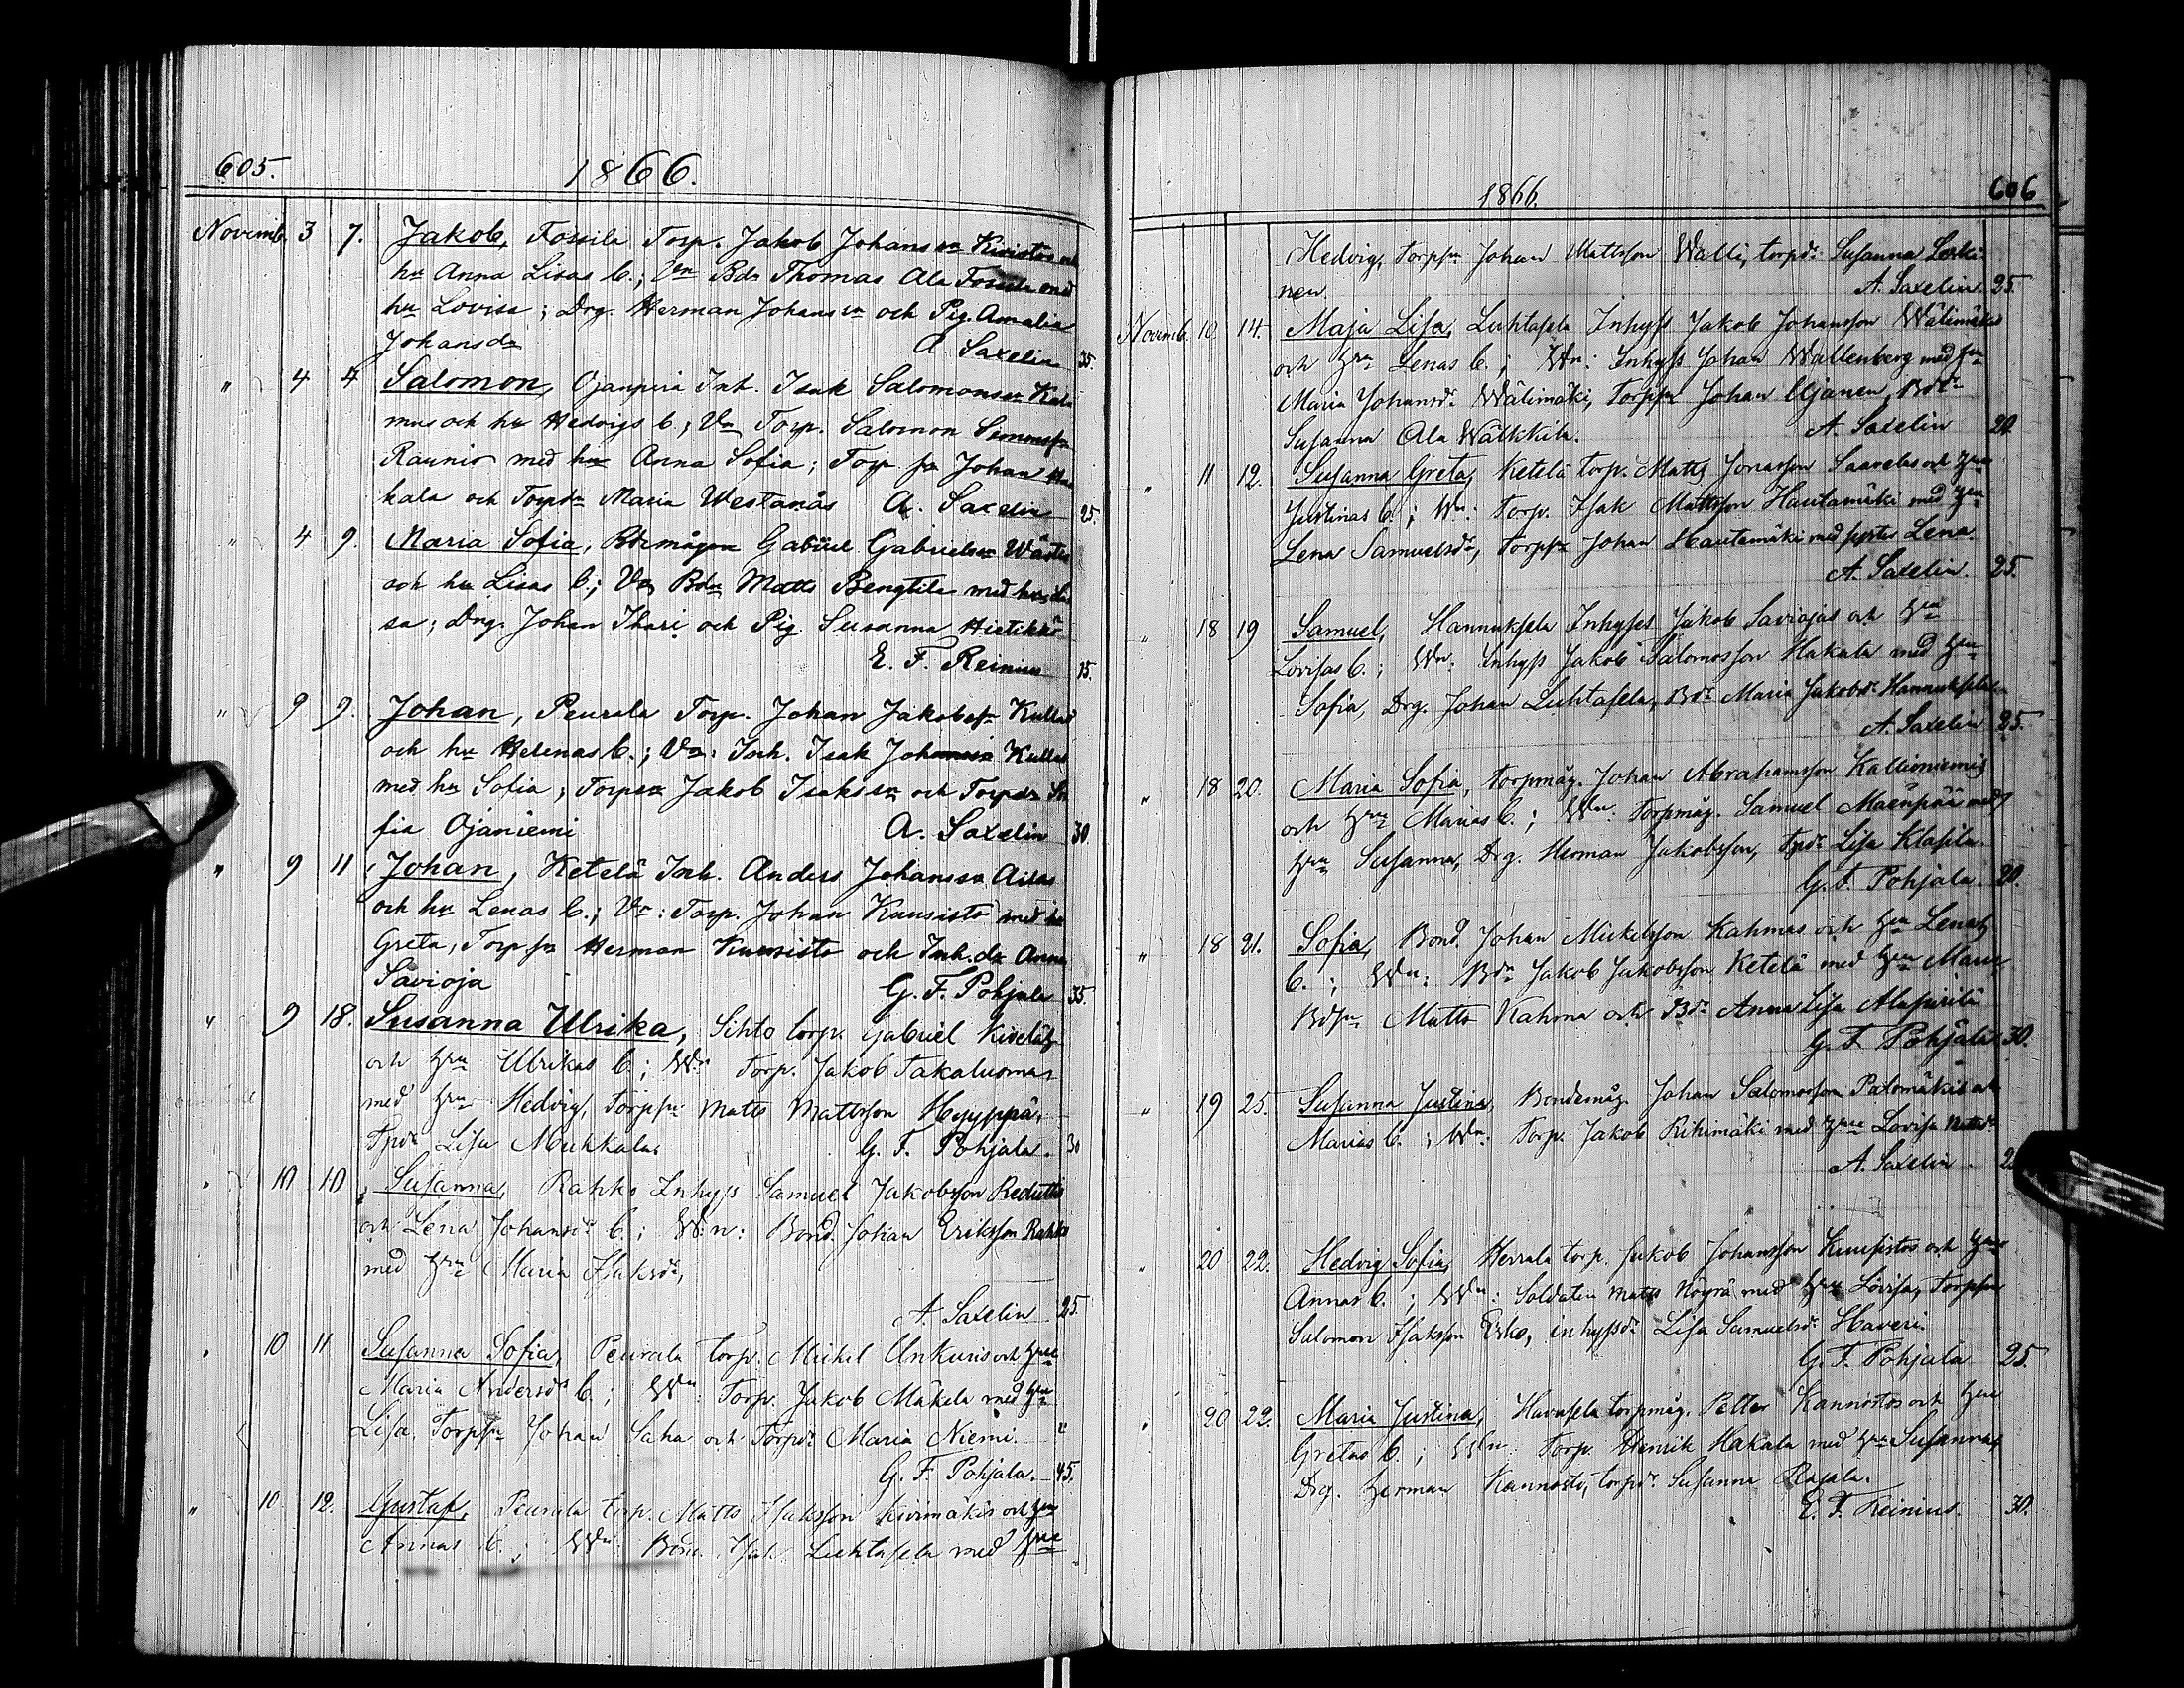 605.
1866.
Novemb. 3 7. Jakob, Fossila Torp. Jakob Johanssn Kivistos och
hu Anna Lisas b.; Vn Bdn Thomas Ala Fossila med
hu Lovisa; Drg. Herman Johanssn och Pig. Amalia
Johansdr A. Saxelin 35.
" 4 4 Salomon, Ojanperä Inh. Isak Salomonssn
mus och hu Hedvigs b.; Vn Torp. Salomon Simonssn
Raunio med hu Anna Sofia; Torp sn Johan Ha
kala och Torpdr Maria Westanås A. Saxelin 25.
" 4 9. Maria Sofia, Bdemågen Gabriel Gabrielssn
och hu Lisas b.; Vn Bdn Matts Bengtila med hu Li
sa; Drg. Johan Ikari och Pig. Susanna Hietikkö
E. F. Reinius 15.
" 9 9. Johan, Peurala Torp. Johan Jakobssn Kullas
och hu Helenas b.; Vn: Inh. Isak Johanssn Kullas
med hu Sofia; Torpsn Jakob Isakssn och Torpdr So
fia Ojaniemi A. Saxelin 30
" 9 11 Johan, Ketelä Inh. Anders Johanssn
och hu Lenas b.; Vn: Torp. Johan Kuusisto med hu
Greta, Torpsn Herman Kuusisto och Inh.dr Anna
Savioja G. F. Pohjala 35.
" 9 18. Susanna Ulrika, Sihto torp. Gabriel
och hru Ulrikas b.; Wn Torp. Jakob Takaluoma
med hru Hedvig, Torpsn Matts Mattsson Hyyppä,
Tpdr Lisa Mukkala. G. F. Pohjala. 30
" 10 10 Susanna, Rahko Inhyss Samuel Jakobsson
och Lena Johansdr b.; W:n: Bond. Johan Eriksson Rahko
med hru Maria Isaksdr,
A. Saxelin 25.
" 10 11 Susanna Sofia, Peurala torp. Mickel Unkuris och hru
Maria Andersdrs b.; Wn: Torp. Jakob Mäkela med hru
Lisa, Torpsn Johan Saha och Torpdr Maria Niemi.
G. F. Pohjala. 45.
" 10 12. Gustaf, Peurala torp. Matts Isaksson Kivimäkis och hru
Annas b.; Wn: Bond. Isak Luhtasela med hru
1866.
606
Hedvig, Torpsn Johan Mattsson Walli, torpdr Susanna Leski-
nen. A. Saxelin 25.
Novemb. 10 14. Maja Lisa, Luhtasela Inhyss Jakob Johansson Wälimäkis
och hru Lenas b.; Wn: Inhyss Johan Wallenberg med hru
Maria Johansdr Wälimäki, Torpsn Johan Ujanen, Bdr
Susanna Ala Wälkkilä. A. Saxelin 20
" 11 12. Susanna Greta, Ketelä torp. Matts Jonasson och hru
Justinas b.; Wn: Torp. Isak Mattsson Hautamäki med hru
Lena Samuelsdr, Torpsn Johan Hautamäki med syster Lena.
A. Saxelin. 25.
" 18 19 Samuel, Hannuksela Inhyses Jakob Saviojas och hru
Lovisas b.; Wn. Inhyss Jakob Salomosson Hakala med hru
Sofia, Drg. Johan Luhtasela, Bdr Maria Jakobsdr Hannuksela
A. Saxelin 25.
" 18 20. Maria Sofia, Torpmåg. Johan Abrahamsson Kallioniemis
och hru Marias b.; Wn: Torpmåg. Samuel Mäenpää med
hru Susanna, Drg. Herman Jakobsson, Tpdr Lisa Klasila.
G. F. Pohjala. 20.
" 18 21. Sofia, Bond. Johan Mickelsson Kahmas och hru Lenas
b.; Wn: Bdn Jakob Jakobsson Ketelä med hru Maria
Bdsn Matts Kahma och Bdr Anna Lisa Alapiritä
G. F. Pohjala 30.
" 19 25. Susanna Justina, Bondemåg. Johan Salomosson Palomäkis och
Marias b.; Wn: Torp. Jakob Rihimäki med hru Lovisa Mattsdr
A. Saxelin. 2
" 20 22. Hedvig Sofia, Herrala torp. Jakob Johansson Kuusistos och hru
Annas b.; Wn: Soldaten Matts Nöyrä med hru Lovisa, Torpsn
Salomon Isaksson Esko, inhyssdr Lisa Samuelsdr Haveri.
G. F. Pohjala 25.
" 20 22. Maria Justina, Havusela torpmåg. Petter Kannostos och hru
Gretas b.; Wn: Torp. Henrik Hakala med hru Susanna,
Drg. Herman Kannosto, torpdr Susanna Rajala.
E. F. Reinius. 30.